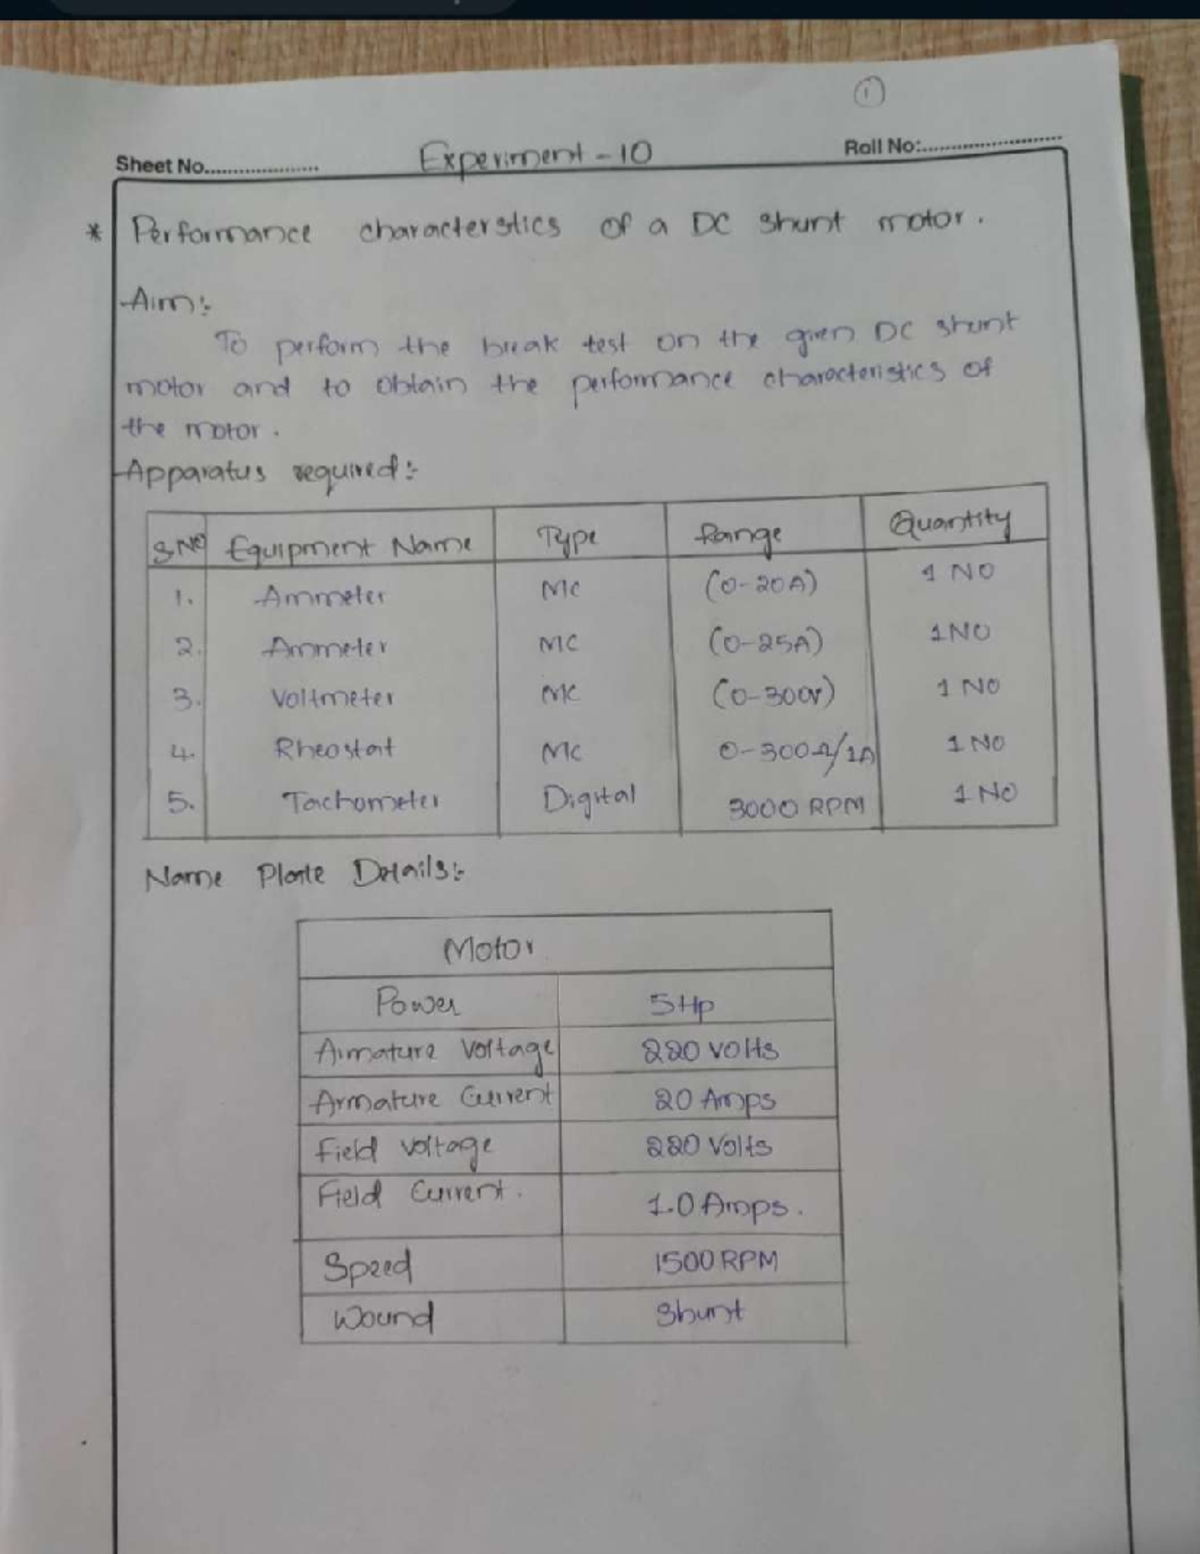 1
Sheet No.................... Experiment - 10 Roll No:........................
* Performance characterstics of a DC shunt motor.
Aim:-
To perform the break test on the given DC shunt
motor and to obtain the performance characteristics of
the motor.
Apparatus required:-
S.NO Equipment Name Type Range Quantity
1. Ammeter MC (0-20A) 1 NO
2. Ammeter MC (0-25A) 1NO
3. Voltmeter MC (0-300v) 1 NO
4. Rheostat MC 0-300Ω/1A 1 NO
5. Tachometer Digital 3000 RPM 1 NO
Name Plate Details:-
Motor
Power 5Hp
Armature Voltage 220 volts
Armature Current 20 Amps
Field voltage 220 Volts
Field Current. 1.0 Amps.
Speed 1500 RPM
Wound Shunt